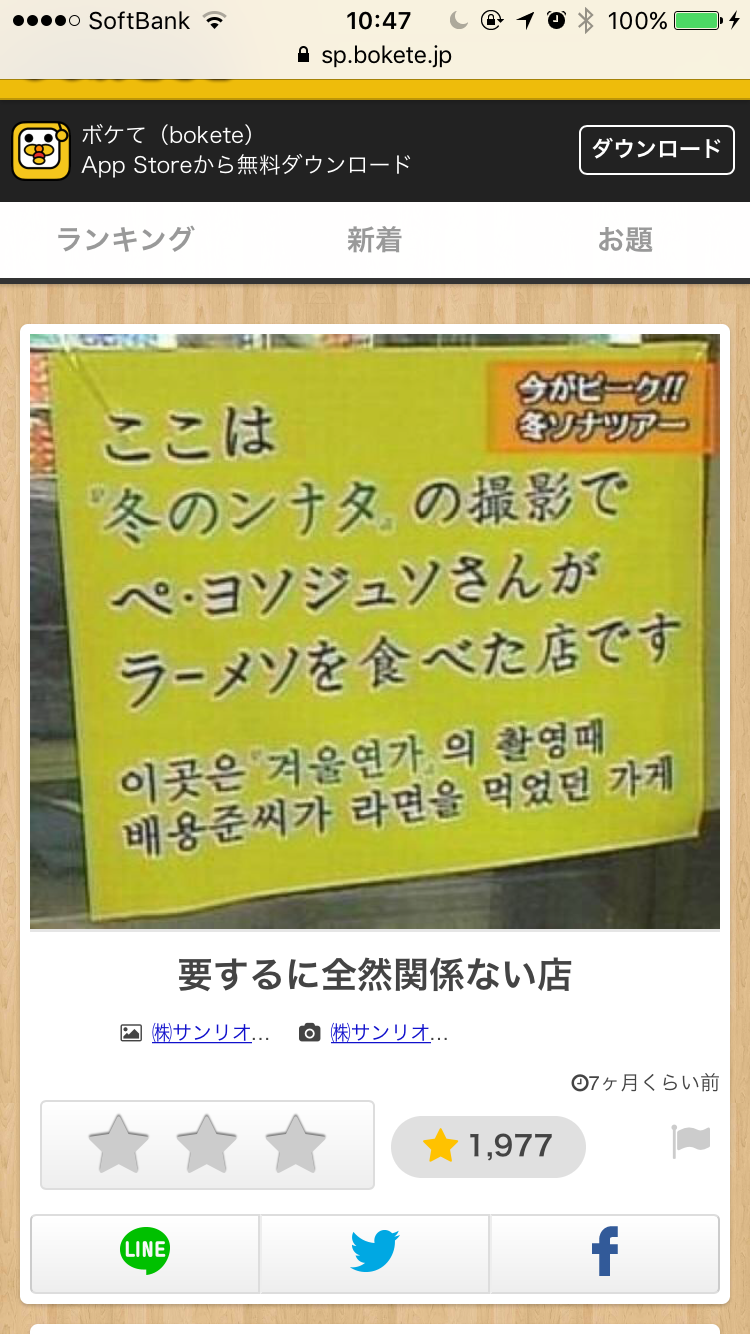 SoftBank 10:47 100%
sp.bokete.jp
ボケて（bokete）
App Storeから無料ダウンロード
ダウンロード
ランキング 新着 お題
今がピーク!!
冬ソナツアー
ここは
『冬のンナタ』の撮影で
ペ・ヨソジュソさんが
ラーメソを食べた店です
이곳은『겨울연가』의 촬영때
배용준씨가 라면을 먹었던 가게
要するに全然関係ない店
㈱サンリオ… ㈱サンリオ…
7ヶ月くらい前
1,977
LINE